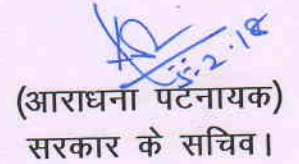 5.2.18
(आराधना पटनायक)
सरकार के सचिव।